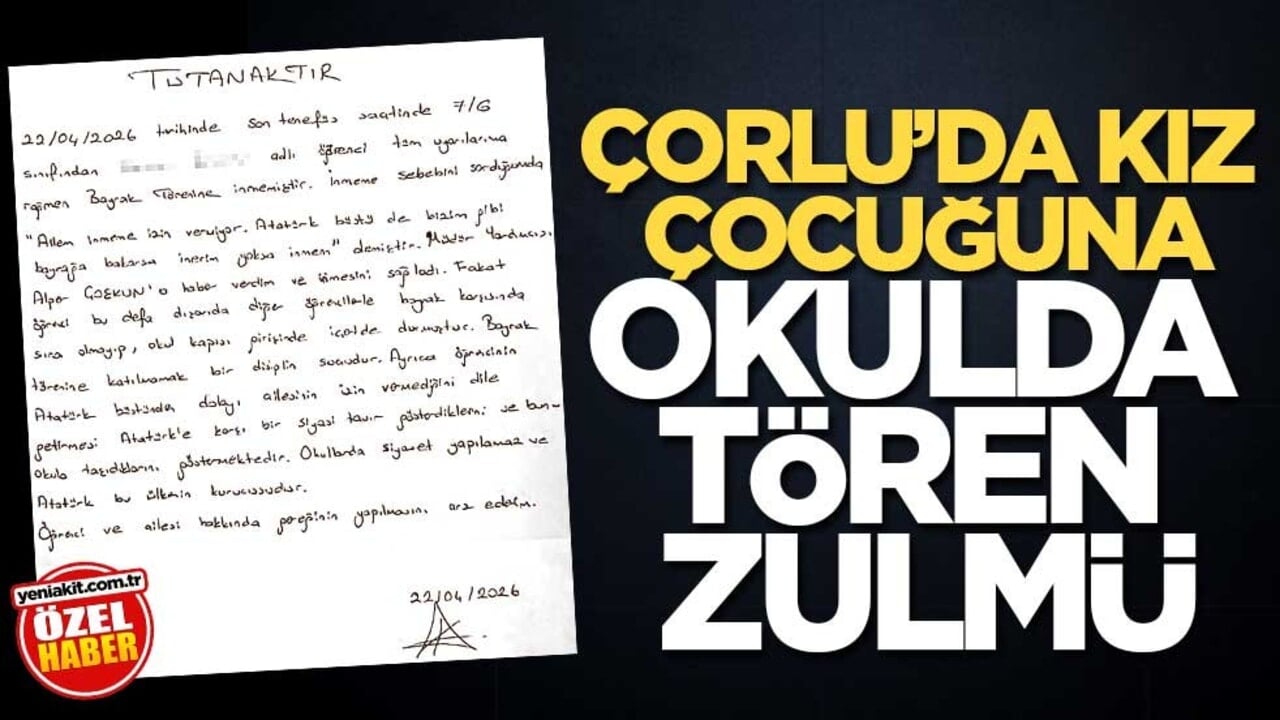 TUTANAKTIR
22/04/2026 tarihinde son teneffüs saatinde 7/G
sınıfından adlı öğrenci tüm uyarılarıma
rağmen Bayrak Törenine inmemiştir. İnmeme sebebini sorduğumda
"Ailem inmeme izin vermiyor. Atatürk büstü de bizim gibi
bayrağa bakarsa inerim yoksa inmem" demiştir. Müdür Yardımcısı
Alper COŞKUN'a haber verdim ve inmesini sağladı. Fakat
öğrenci bu defa dışarıda diğer öğrencilerle bayrak karşısında
sıra olmayıp, okul kapısı girişinde içeride durmuştur. Bayrak
törenine katılmamak bir disiplin suçudur. Ayrıca öğrencinin
Atatürk büstünden dolayı ailesinin izin vermediğini dile
getirmesi Atatürk'e karşı bir siyasi tavır gösterdiklerini ve bunu
okula taşıdıklarını göstermektedir. Okullarda siyaset yapılamaz ve
Atatürk bu ülkenin kurucusudur.
Öğrenci ve ailesi hakkında gereğinin yapılmasını arz ederim.
22/04/2026
yeniakit.com.tr
ÖZEL
HABER
ÇORLU'DA KIZ
ÇOCUĞUNA
OKULDA
TÖREN
ZULMÜ